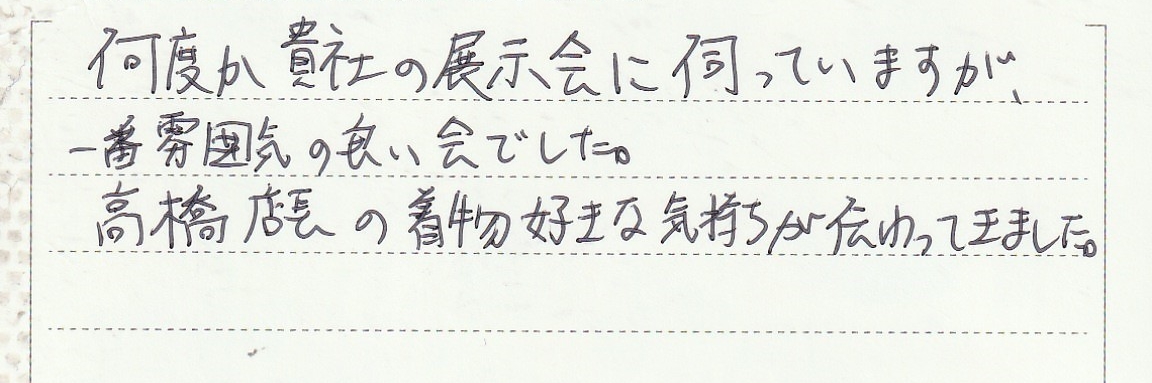 何度か貴社の展示会に伺っていますが、
一番雰囲気の良い会でした。
高橋店長の着物好きな気持ちが伝わってきました。